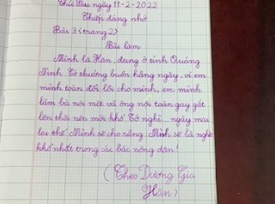 Thứ Sáu ngày 11-2-2022
Thiệp đáng nhớ
Bài 3 (trang 2)
Bài làm
Mình là Hân, đang ở tỉnh Quảng
Ninh. Cứ thường buồn hằng ngày, vì em
mình toàn đổi lỗi cho mình, em mình
làm bà nói mệt và ông nội toàn gay gắt
lên thôi nên mới khó nghỉ. ngày mai
lại thế Mình sẽ cho rằng Mình sẽ là nghề
khó nhất trong các bác nông dân!
(Theo Dương Gia
Hân)